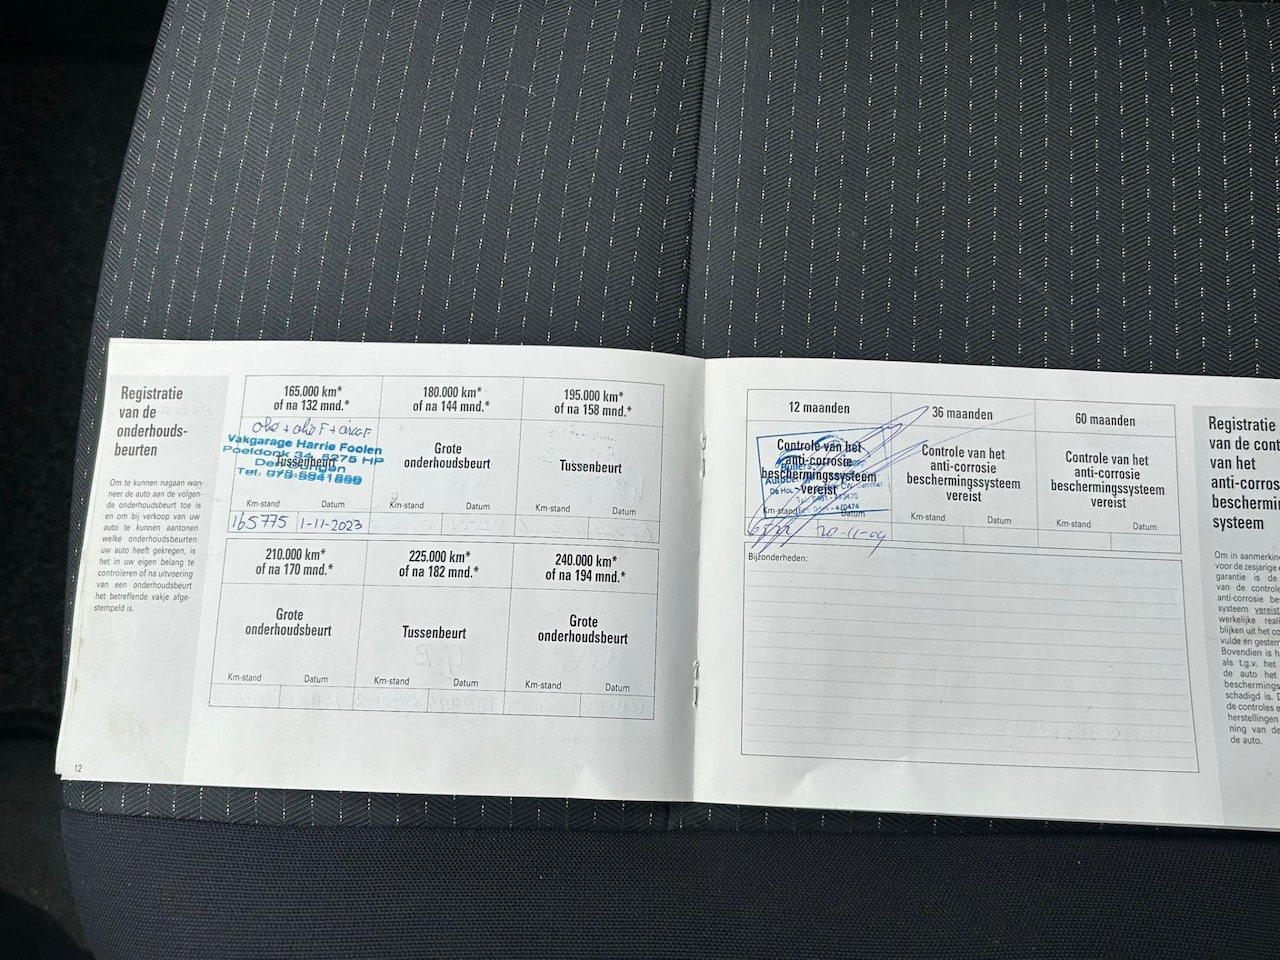 Registratie
van de
onderhouds-
beurten
Om te kunnen nagaan wan-
neer de auto aan de volgen-
de onderhoudsbeurt toe is
en om bij verkoop van uw
auto te kunnen aantonen
welke onderhoudsbeurten
uw auto heeft gekregen, is
het in uw eigen belang te
controleren of na uitvoering
van een onderhoudsbeurt
het betreffende vakje afge-
stempeld is.
165.000 km*
of na 132 mnd.*
Vakgarage Harrie Foolen
Poeldonk 34, 5275 HP
Tussenbeurt
Tel. 073-5941869
Km-stand Datum
165775 1-11-2023
180.000 km*
of na 144 mnd.*
Grote
onderhoudsbeurt
Km-stand Datum
195.000 km*
of na 158 mnd.*
Tussenbeurt
Km-stand Datum
210.000 km*
of na 170 mnd.*
Grote
onderhoudsbeurt
Km-stand Datum
225.000 km*
of na 182 mnd.*
Tussenbeurt
Km-stand Datum
240.000 km*
of na 194 mnd.*
Grote
onderhoudsbeurt
Km-stand Datum
12
12 maanden
Controle van het
anti-corrosie
beschermingssysteem
vereist
Km-stand Datum
20-11-09
36 maanden
Controle van het
anti-corrosie
beschermingssysteem
vereist
Km-stand Datum
60 maanden
Controle van het
anti-corrosie
beschermingssysteem
vereist
Km-stand Datum
Bijzonderheden:
Registratie
van de cont
van het
anti-corros
beschermin
systeem
Om in aanmerkin
voor de zesjarige
garantie is de
van de controle
anti-corrosie be
systeem vereist
werkelijke reali
blijken uit het co
vulde en gestem
Bovendien is h
als t.g.v. het
de auto het
beschermings
schadigd is.
de controles e
herstellingen
ning van de
de auto.